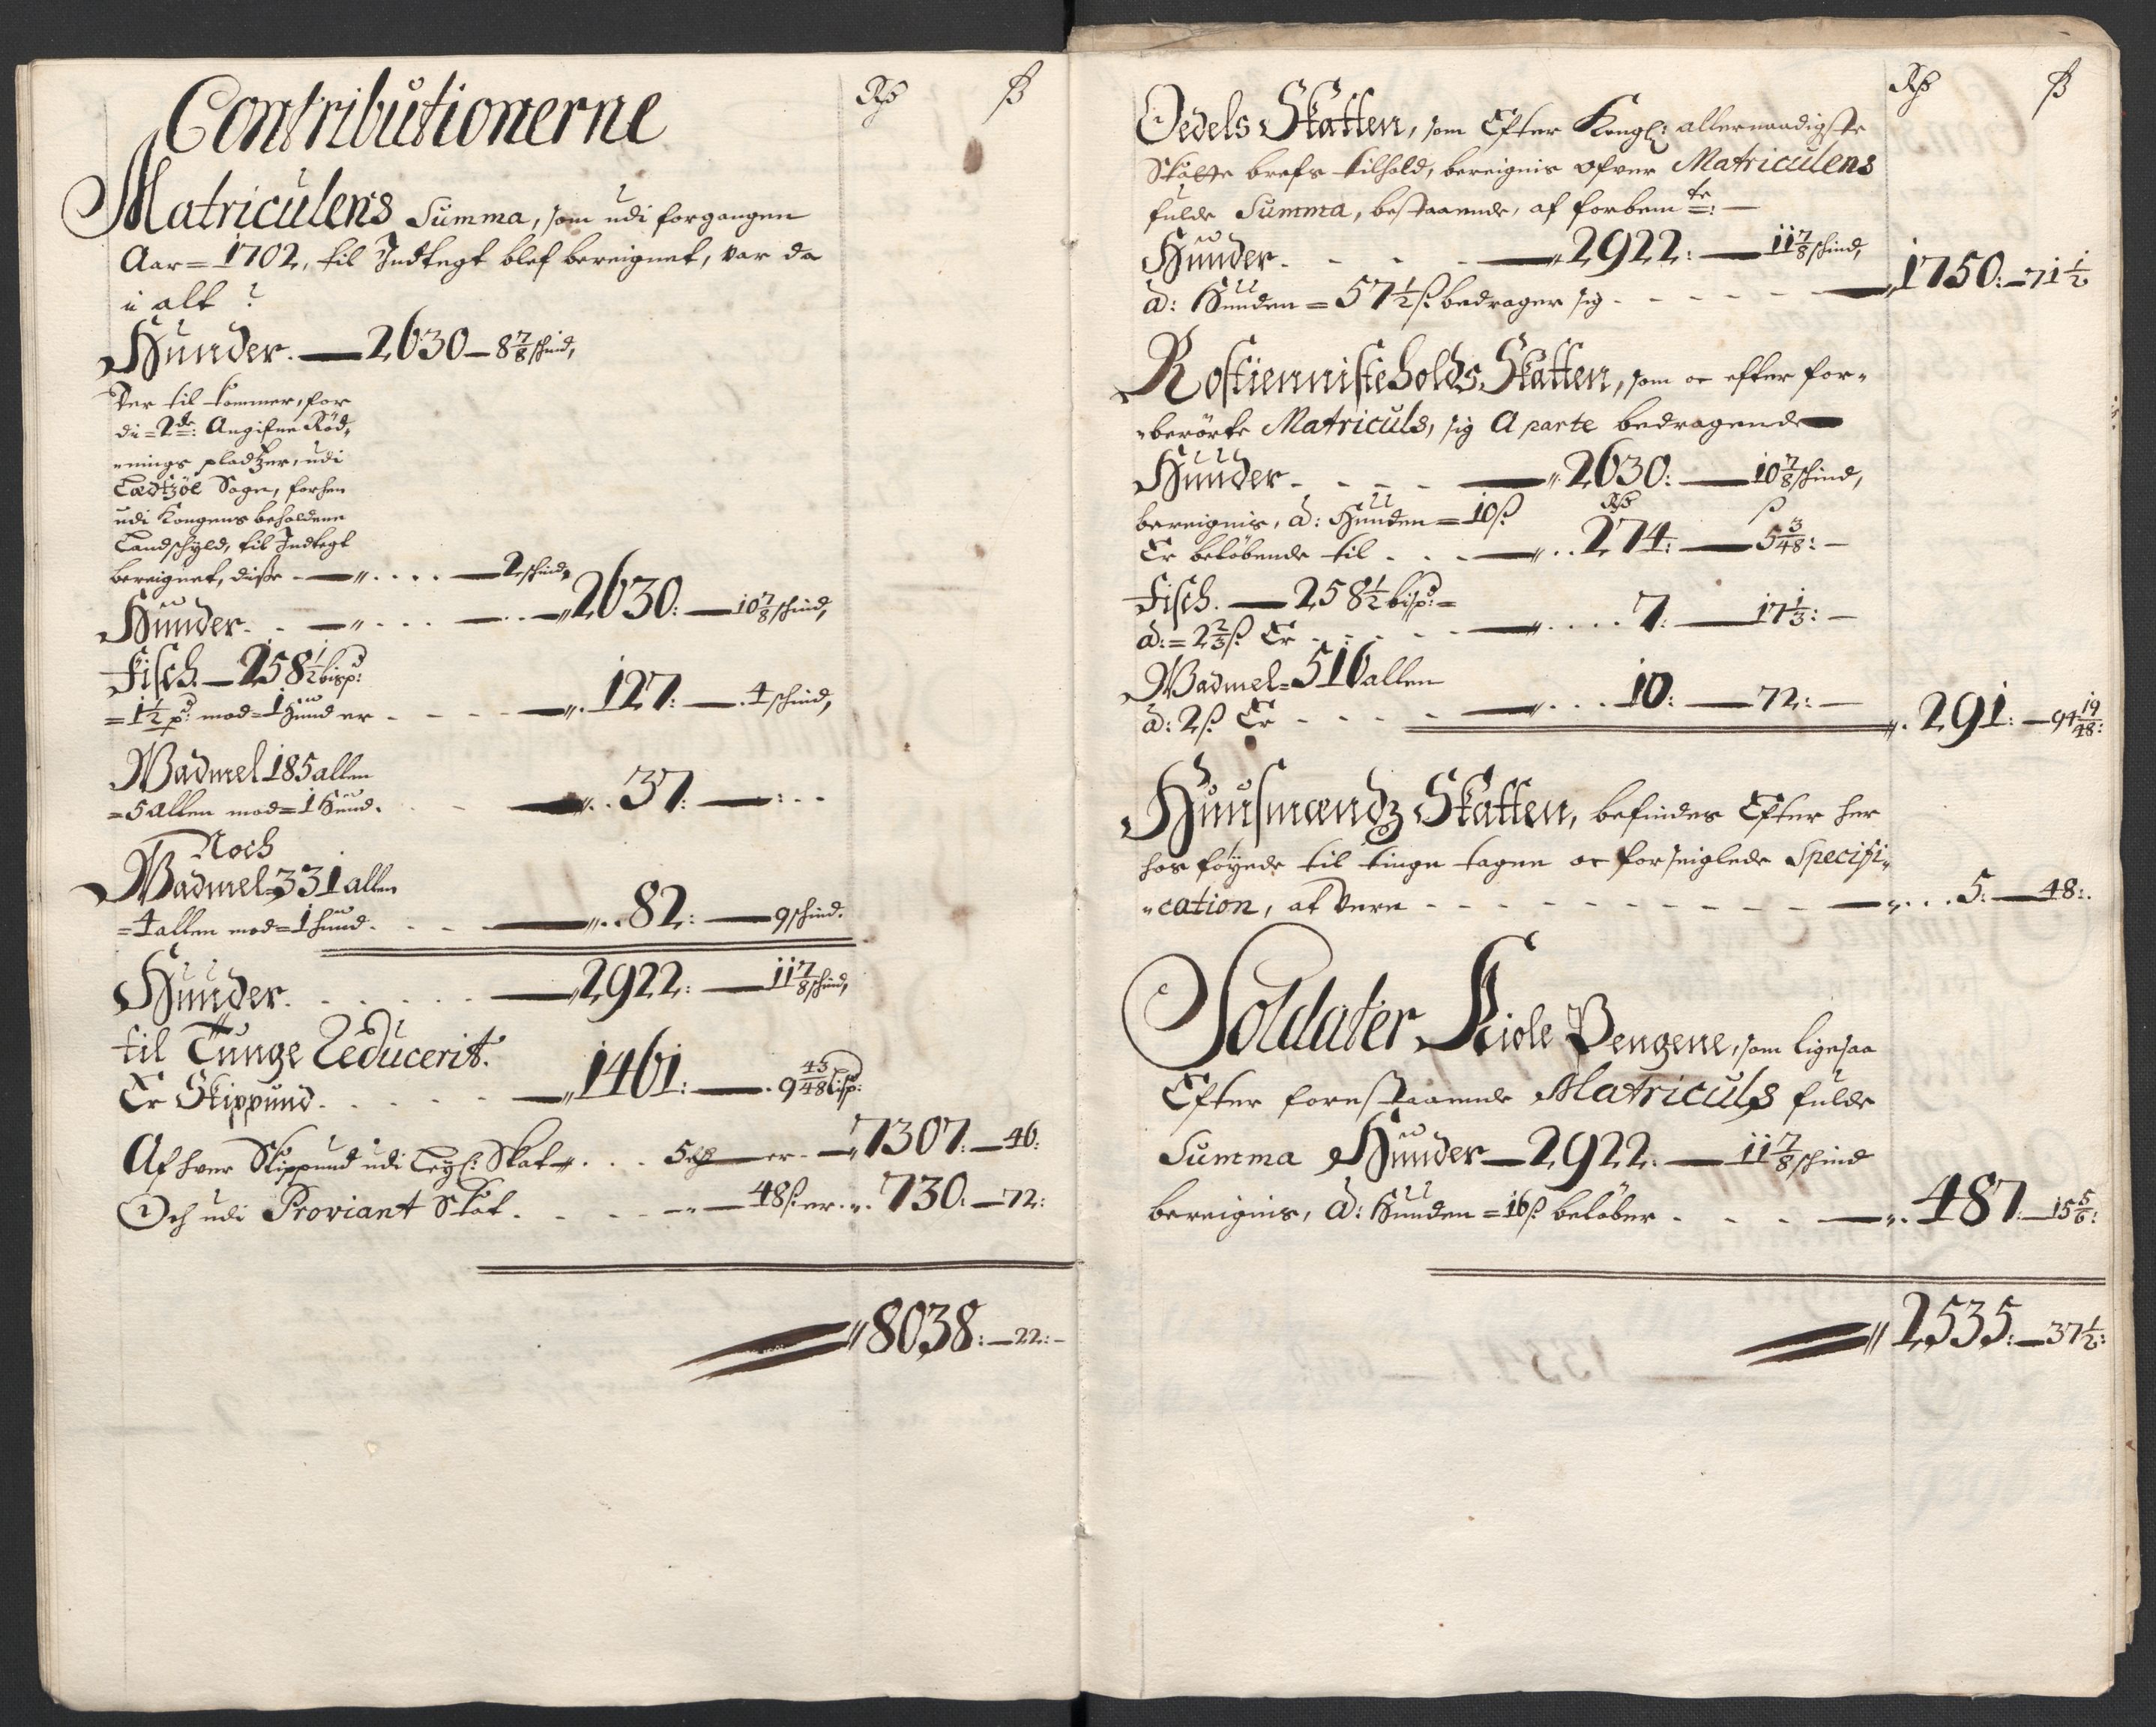 Rdr ß
Contributionerne
Matriculens Summa, som udi forgangen
Aar = 1702, til Indtegt blef bereignet, var da
i alt
Hunder. — 2630 — 8 7/8 schind,
Der til kommer, for
di = 2de: Angifne Rød,
nings pladtzer, udi
Sogn, forhen
udi Kongens beholdene
Landschyld, til Indtegt
bereignet, disse - — „ . . . . — 2 schind,
Hunder. . — „ . . . — . — „ 2630: — 10 7/8 schind,
Fisch. — 258 1/2 bispd:
= 1 1/2 pd: mod = 1 Hund er - - - — „. 127: — . 4 schind,
Wadmel 185 allen
= 5 Allen mod = 1 Hund. - - — „. . 37: — : . .
Noch
Wadmel = 331 allen
= 4 allen mod = 1 hund. - - — „. . 82: — 9 schind.
Hunder. . . . . . — „ 2922: — 11 7/8 schind,
til Tunge Reducerit.
Er Skippund. . . . . — „ 1461: — . 9 43/48 lispd:
Af hver Skippund udi Skat „. . . 5 Rdr — er. — „ 7307: — 46:
Och udi Proviant Skat. . . . . — 48 ß: er. „. 730: — 72:
„ 8038: — 22: -
Rdr ß
Oedels Skatten, som Efter Kongl: allernaadigste
Skatte brefs tilhold, bereignis ofver Matriculens
fulde Summa, bestaaende, af forbemte: —
Hunder. - - - — „ 2922: — 11 7/8 schind,
à: Hunden = 57 1/2 ß: bedrager sig - - - - — „ 1750: — 71 1/2
Rostiennisteholds Skatten, som oc efter for-
berörte Matriculs, sig A parte bedragende —
Hunder - - - - — „ 2630: — 10 7/8 schind,
bereignis, à: Hunden = 10 ß: Rdr ß
Er beløbende til . . . — „. . 274: — 5 3/48: -
Fisch. — 258 1/2 bispd: =
à: = 2 2/3 ß: Er - - - — „. . . . 7: — 17 1/3: -
Wadmel = 516 allen
à: 2 ß: Er - - - - — „. . . 10: — 72: - „. 291: — 94 19/48:
Huusmændz Skatten, befindes Efter her
hos føyede til tinge tagne oc forseiglede Specifi-
cation, at vere - - - - - - - - — „. . . 5: — 48:.
Soldater Kiole Pengene, som ligesaa
Efter forestaaende Matriculs fulde
Summa Hunder — 2922. — 11 7/8 schind
bereignis, à: Hunden = 16 ß: beløber . - - — „. 487: — 15 5/6:
„ 2535: — 37 1/2: